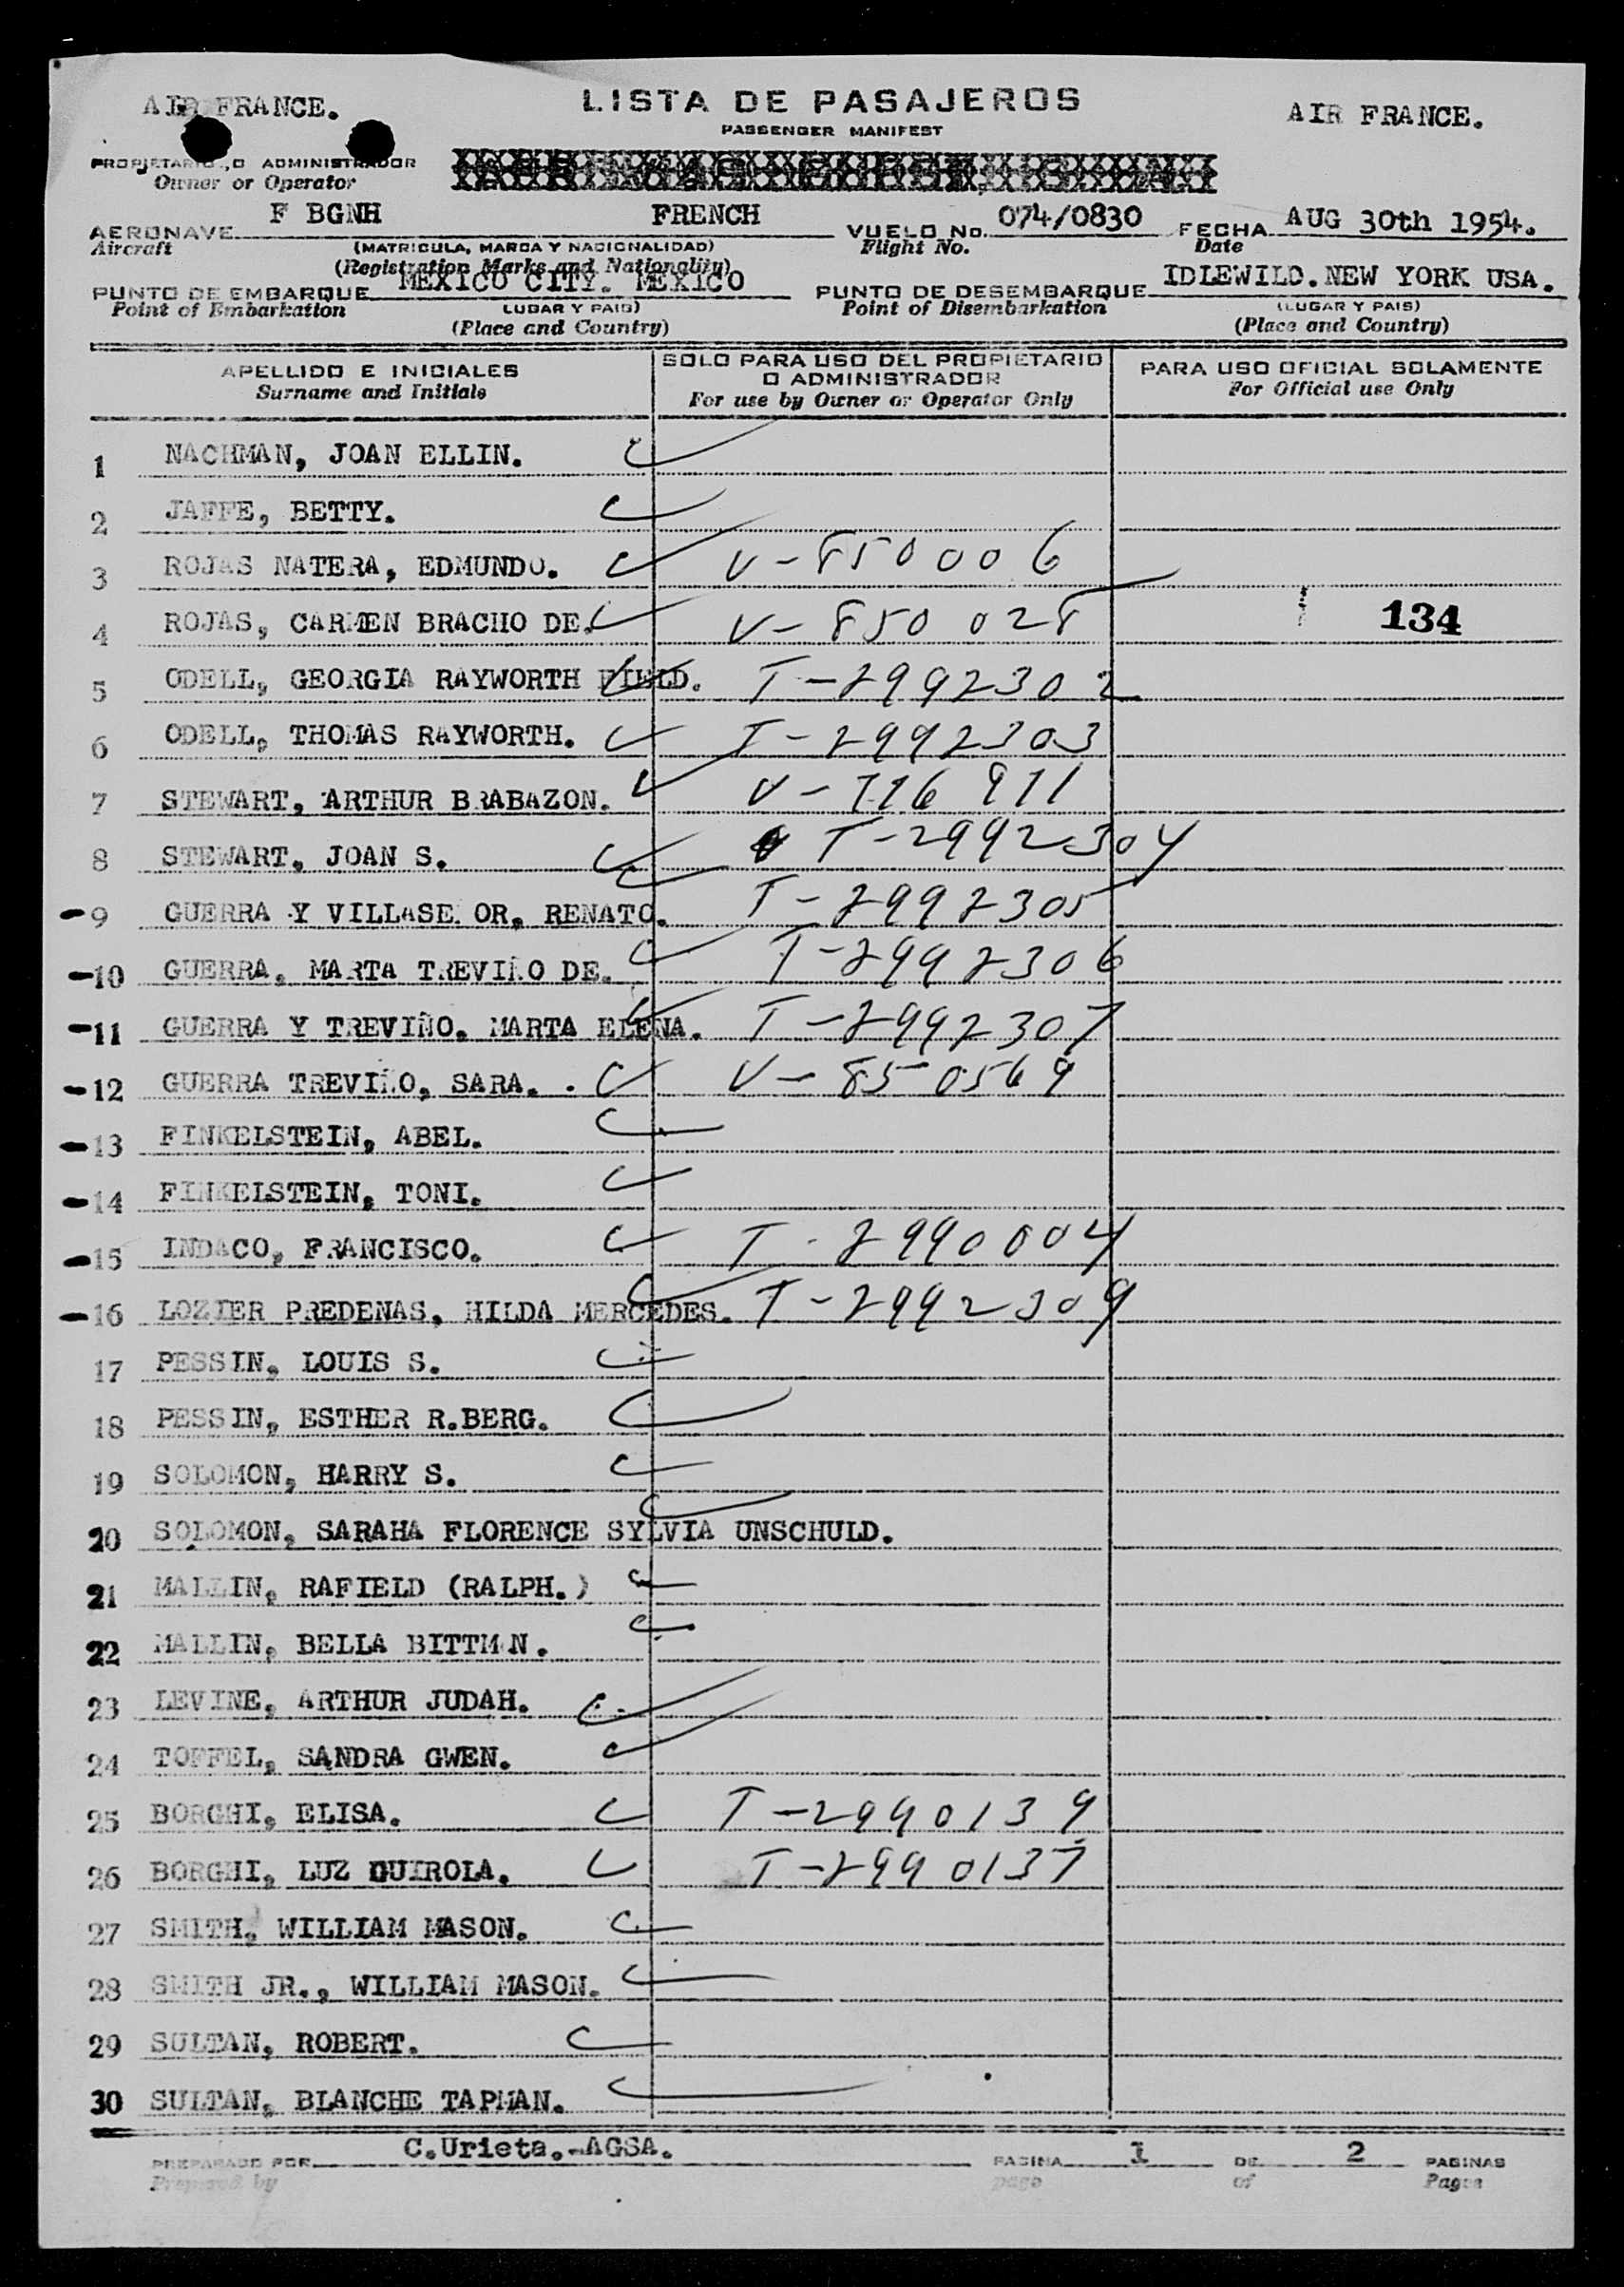 AIR FRANCE.
LISTA DE PASAJEROS
PASSENGER MANIFEST
AIR FRANCE.
PROPIETARIO O ADMINISTRADOR
Owner or Operator
F BGNH FRENCH
AERONAVE
Aircraft
(MATRICULA, MARCA Y NACIONALIDAD)
(Registration Marks and Nationality)
VUELO No. 074/0830
Flight No.
FECHA AUG 30th 1954.
Date
PUNTO DE EMBARQUE MEXICO CITY. MEXICO
Point of Embarkation
LUGAR Y PAIS)
(Place and Country)
PUNTO DE DESEMBARQUE IDLEWILD.NEW YORK USA.
Point of Disembarkation
(LUGAR Y PAIS)
(Place and Country)
APELLIDO E INICIALES
Surname and Initials
SOLO PARA USO DEL PROPIETARIO
O ADMINISTRADOR
For use by Owner or Operator Only
PARA USO OFICIAL SOLAMENTE
For Official use Only
1 NACHMAN, JOAN ELLIN.
2 JAFFE, BETTY.
3 ROJAS NATERA, EDMUNDO. V-850006
4 ROJAS, CARMEN BRACHO DE. V-850 028 134
5 ODELL, GEORGIA RAYWORTH FIELD. T-2992302
6 ODELL, THOMAS RAYWORTH. T-2992303
7 STEWART, ARTHUR BRABAZON. V-
8 STEWART, JOAN S. T-2992304
-9 GUERRA Y VILLASE OR, RENATO. T-2992305
-10 GUERRA, MARTA TREVIÑO DE. T-2992306
-11 GUERRA Y TREVIÑO. MARTA ELENA. T-2992307
-12 GUERRA TREVIÑO, SARA. . V-850569
-13 FINKELSTEIN, ABEL.
-14 FINKELSTEIN, TONI.
-15 INDACO, FRANCISCO. T-2990004
-16 LOZIER PREDENAS, HILDA MERCEDES. T-2992309
17 PESSIN, LOUIS S.
18 PESSIN, ESTHER R.BERG.
19 SOLOMON, HARRY S.
20 SOLOMON, SARAHA FLORENCE SYLVIA UNSCHULD.
21 MALLIN, RAFIELD (RALPH.)
22 MALLIN, BELLA BITTM N.
23 LEVINE, ARTHUR JUDAH.
24 TOFFEL, SANDRA GWEN.
25 BORGHI, ELISA. T-2990139
26 BORGHI, LUZ QUIROLA. T-2990137
27 SMITH, WILLIAM MASON.
28 SMITH JR., WILLIAM MASON.
29 SULTAN, ROBERT.
30 SULTAN, BLANCHE TAPMAN.
PREPARADO POR C.Urieta.-AGSA.
Prepared by
PAGINA 1 DE 2 PAGINAS
page of Pages